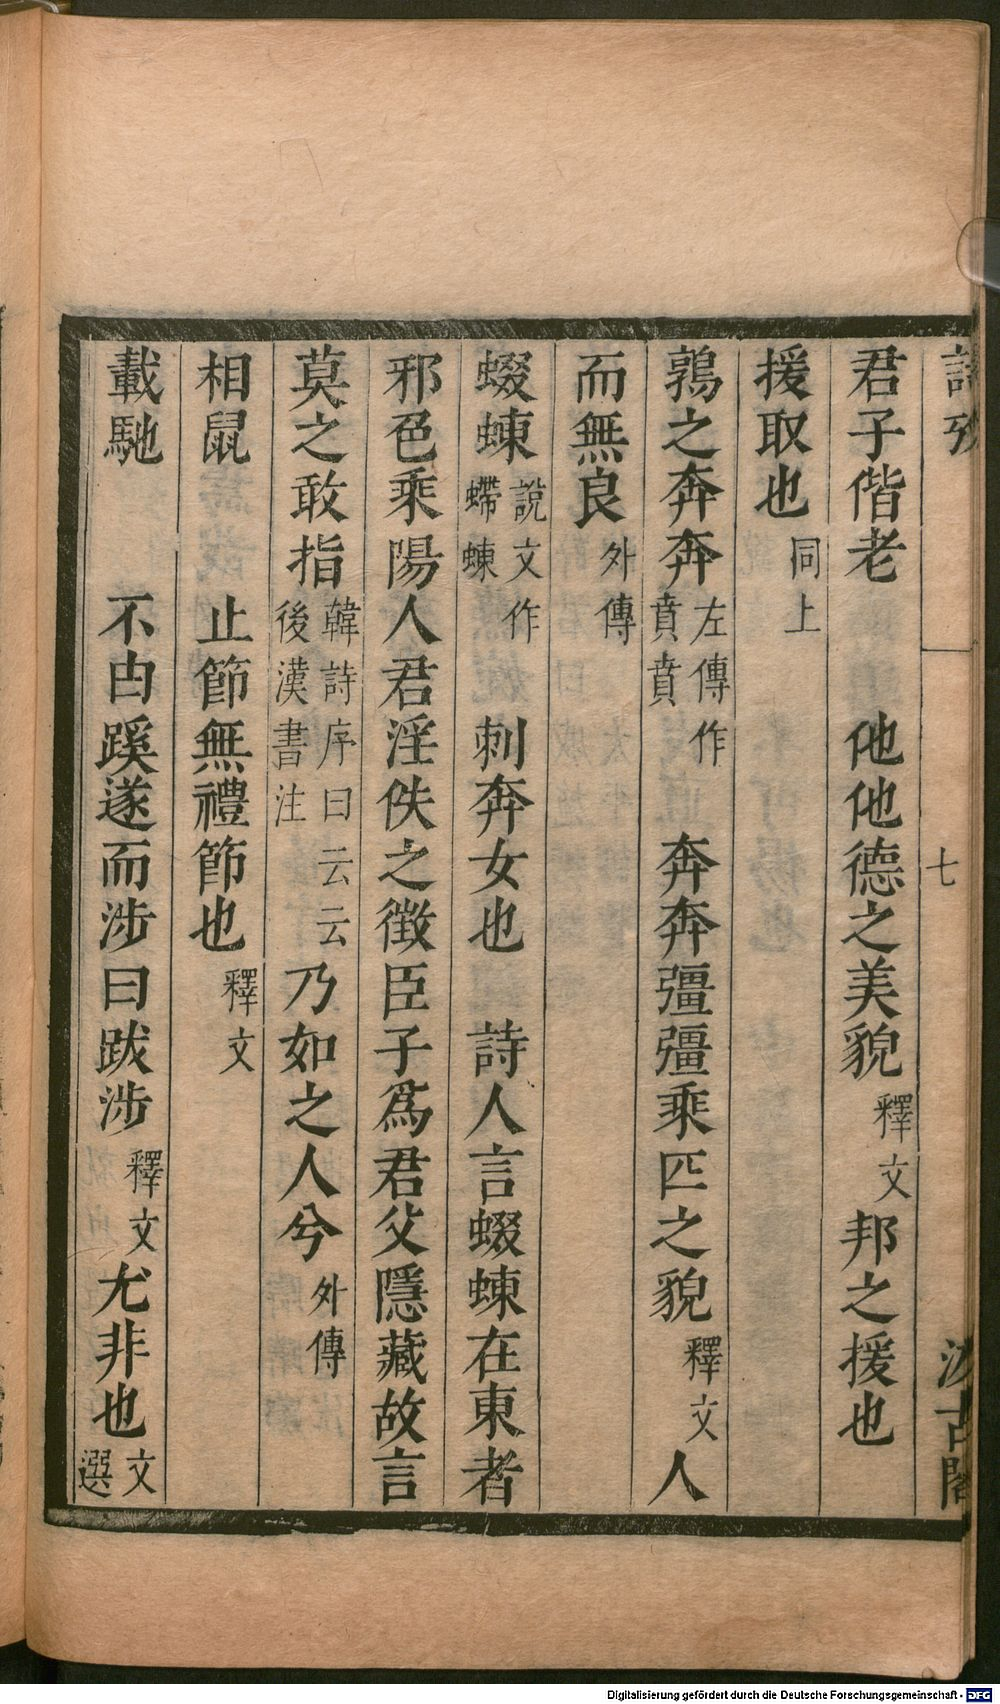 詩攷 七 汲古閣
君子偕老 他他德之美貌釋文邦之援也
援取也同上
鶉之奔奔左傳作賁賁 奔奔彊彊乘匹之貌釋文人
而無良外傳
蝃蝀說文作螮蝀 刺奔女也 詩人言蝃蝀在東者
邪色乘陽人君淫佚之徵臣子爲君父隱藏故言
莫之敢指韓詩序曰云云後漢書注乃如之人兮外傳
相鼠 止節無禮節也釋文
載馳 不由蹊遂而涉曰跋涉釋文尤非也文選
Digitalisierung gefördert durch die Deutsche Forschungsgemeinschaft - DFG